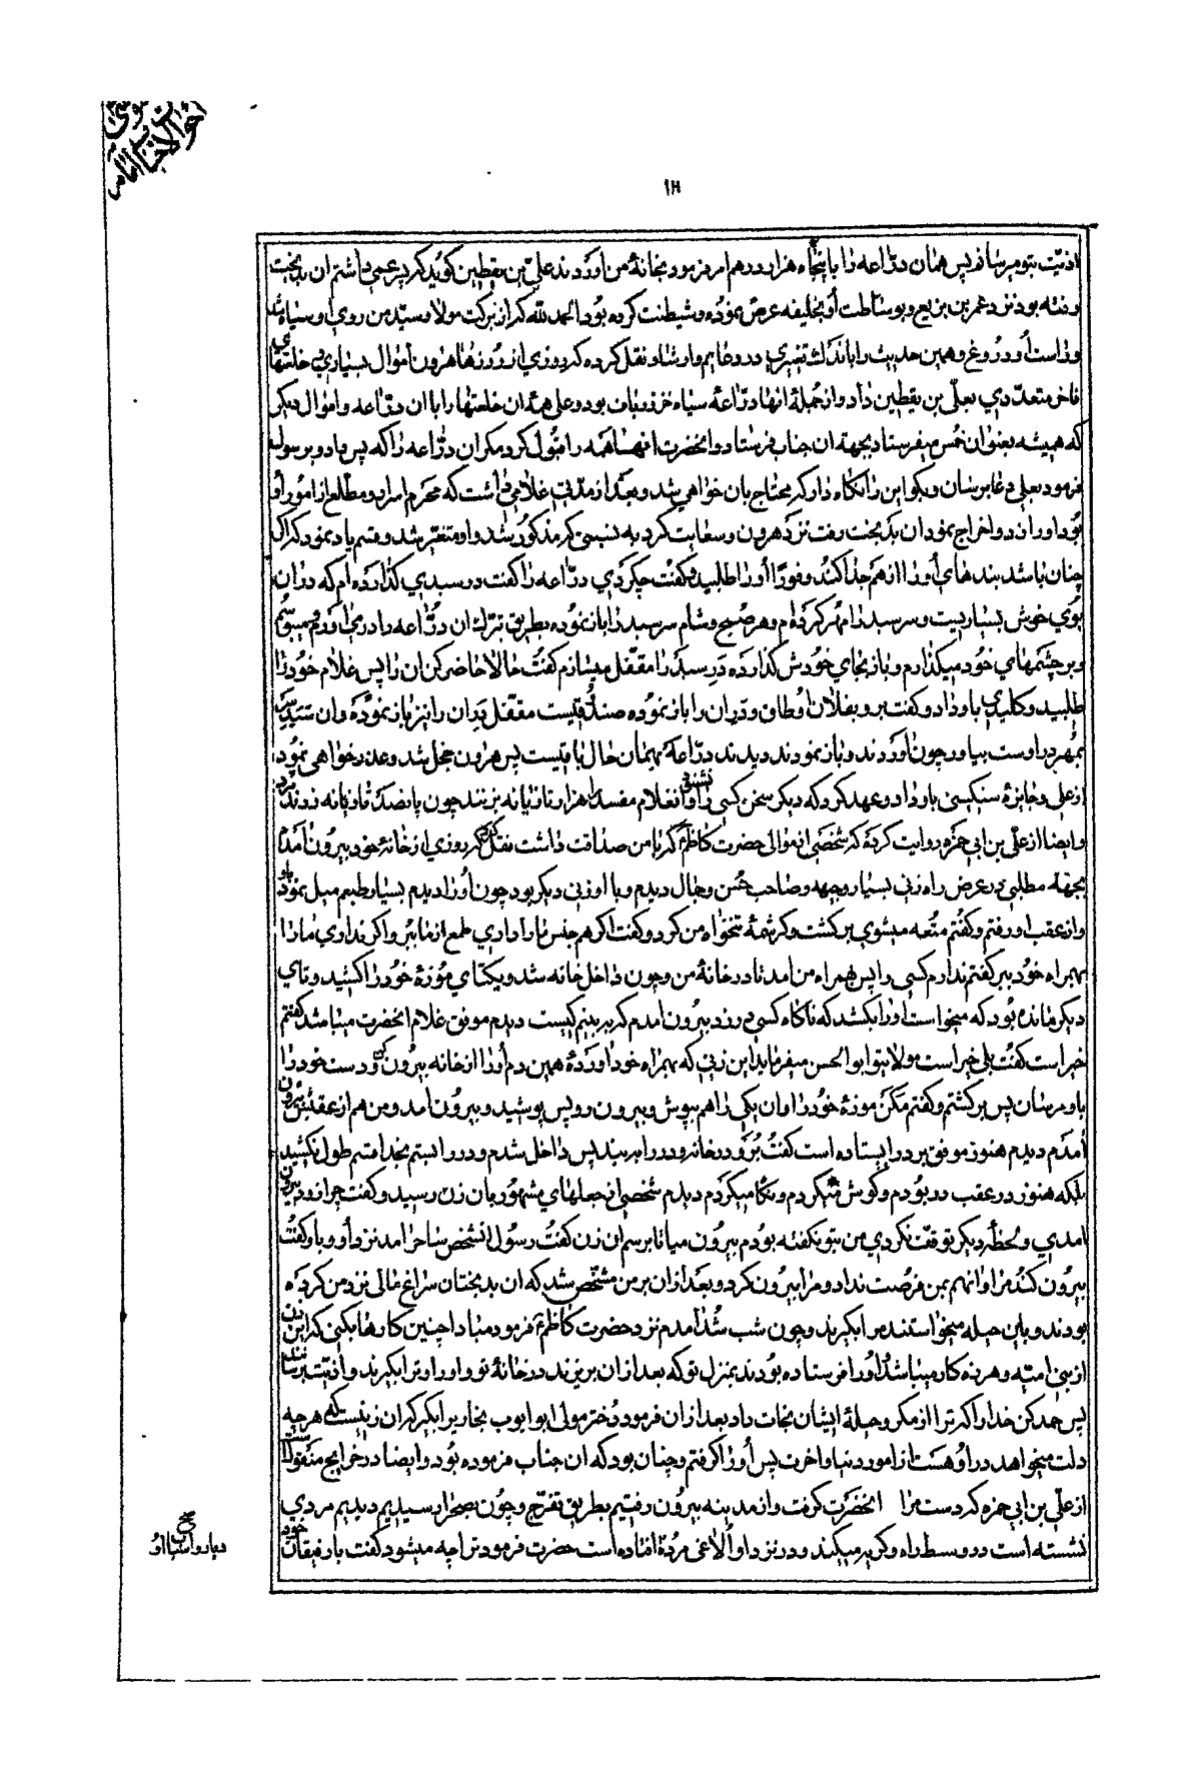 احوالات جناب امام موسی
۱۲
اذیّت بتو میرسانم پس همان درّاعه را با پنجاه هزار درهم امر فرمود بخانهٔ من اوردند علیّ بن یقطین گوید که پسر عمی داشتم ان بدبخت
رفته بود نزد عمر بن بزیع و بوساطت او بخلیفه عرض نموده و شیطنت کرده بود الحمد لله که از برکت مولا و سیّد من روی او سیاه شد
و راست او دروغ و همین حدیث را باندک تغییری در و ارشاد نقل کرده که روزی از روزها هرون اموال بسیاری با خلعتهای
فاخر متعدّدی بعلیّ بن یقطین داد و از جملهٔ انها درّاعهٔ سیاه خز زرباف بود و علی همهٔ ان خلعتها را با ان درّاعه و اموال دیگر
که همیشه بعنوان خمس میفرستاد بجهة ان جناب فرستاد و انحضرت انها همه را قبول کرد مگر ان درّاعه را که پس داد و برسول
فرمود بعلی دعا برسان و بگو این را نگاه دار که محتاج بان خواهی شد و بعد از مدّتی غلامی داشت که محرم اسرار و مطلع از امور او
بود او را زد و اخراج نمود ان بدبخت رفت نزد هرون و سعایت کرد به نسبتی که مذکور شد و او متغیّر شد و قسم یاد نمود که اگر
چنان باشد بندهای او را از هم جدا کند و فوراً او را طلبید و گفت چه کردی درّاعه را گفت در سبدی گذارده ام که در ان
بوی خوش بسیاریست و سر سبد را مهر کرده ام و هر صبح و شام سر سبد را باز نموده بطریق تبرّک ان درّاعه را درمی اورم و میبوسم
و بر چشمهای خود میگذارم و باز بجای خودش گذارده در سبد را مقفّل میسازم گفت حالا حاضر کن ان را پس غلام خود را
طلبید و کلیدی باو داد و گفت برو بفلان اوطاق و در ان را باز نموده صندوقیست مقفّل در ان را نیز باز نموده و ان سبدی
بمهر در اوست بیاور چون اوردند و باز نمودند دیدند درّاعه بهمان حال باقیست پس هرون خجل شد و عذرخواهی نمود
از علی و جایزهٔ سنگینی باو داد و عهد کرد که دیگر سخن کسی را نشنود و ان غلام مفسد را هزار تازیانه بزنند چون پانصد تازیانه زدند مرد
و ایضا از علیّ بن ابی حمزه روایت کرده که شخصی از موالی حضرت کاظم که با من صداقت داشت نقل کرد که روزی از خانهٔ خود بیرون امدم
بجهة مطلبی در عرض راه زنی بسیار وجیهه و صاحب حسن و جمال دیدم و با او زنی دیگر بود چون او را دیدم بسیار طبعم میل نمود باو
و از عقب او رفتم و گفتم متعه میشوی برگشت و کرشمهٔ تنخواه من کرد و گفت اگر هم جنس ما را داری طمع از ما ببر و اگر نداری ما را
بهمراه خود ببر گفتم ندارم کسی را پس همراه من امد تا در خانهٔ من و چون داخل خانه شد و یکتای موزهٔ خود را کشید و تای
دیگر مانده بود که میخواست او را بکشد که ناگاه کسی در زد بیرون امدم که ببینم کیست دیدم موفق غلام انحضرت میباشد گفتم
خیر است گفت بلی خیر است مولا بتو ابو الحسن میفرماید این زنی که بهمراه خود اورده همین دم او را از خانه بیرون کن و دست خود را
باو مرسان پس برگشتم و گفتم مکن موزهٔ خود را و ان یکی را هم بپوش و بیرون رو پس پوشید و بیرون امد و من هم از عقبش بیرون
امدم دیدم هنوز موفق بر در ایستاده است گفت برو در خانه و در را ببند پس داخل شدم و در را بستم بخدا قسم طول نکشید
بلکه هنوز در عقب در بودم و گوش میکردم و نگاه میکردم دیدم شخصی از جعلهای مشهور بان زن رسید و گفت چرا زود بیرون
امدی و لحظهٔ دیگر توقف نکردی من بتو نگفته بودم بیرون میا تا برسم ان زن گفت رسول انشخص ساحر امد نزد او و باو گفت
بیرون کند مرا و انهم بمن فرصت نداد و مرا بیرون کرد و بعد از ان بر من مشخّص شد که ان بدبختان سراغ مالی نزد من کرده
بودند و باین حیله میخواستند مرا بگیرند و چون شب شد امدم نزد حضرت کاظم فرمود مبادا چنین کارها بکنی که این زن
از بنی امیّه و هرزه کار میباشد و او را فرستاده بودند بمنزل تو که بعد از ان بریزند در خانهٔ تو و او را و ترا بگیرند و اذیّت برسانند
پس حمد کن خدا را که ترا از مکر و حیلهٔ ایشان نجات داد بعد از ان فرمود دختر مولی ابو ایوب بخاری را بگیر که ان زنیست که هرچه
دلت میخواهد در او هست از امور دنیا و اخرت پس او را گرفتم و چنان بود که ان جناب فرموده بود و ایضا در خرایج منقولست
از علیّ بن ابی حمزه که دست مرا انحضرت گرفت و از مدینه بیرون رفتیم بطریق تفرّج و چون بصحرا رسیدیم دیدیم مردی
نشسته است در وسط راه و گریه میکند و در نزد او الاغی مردهٔ افتاده است حضرت فرمود ترا چه میشود گفت با رفیقان خود